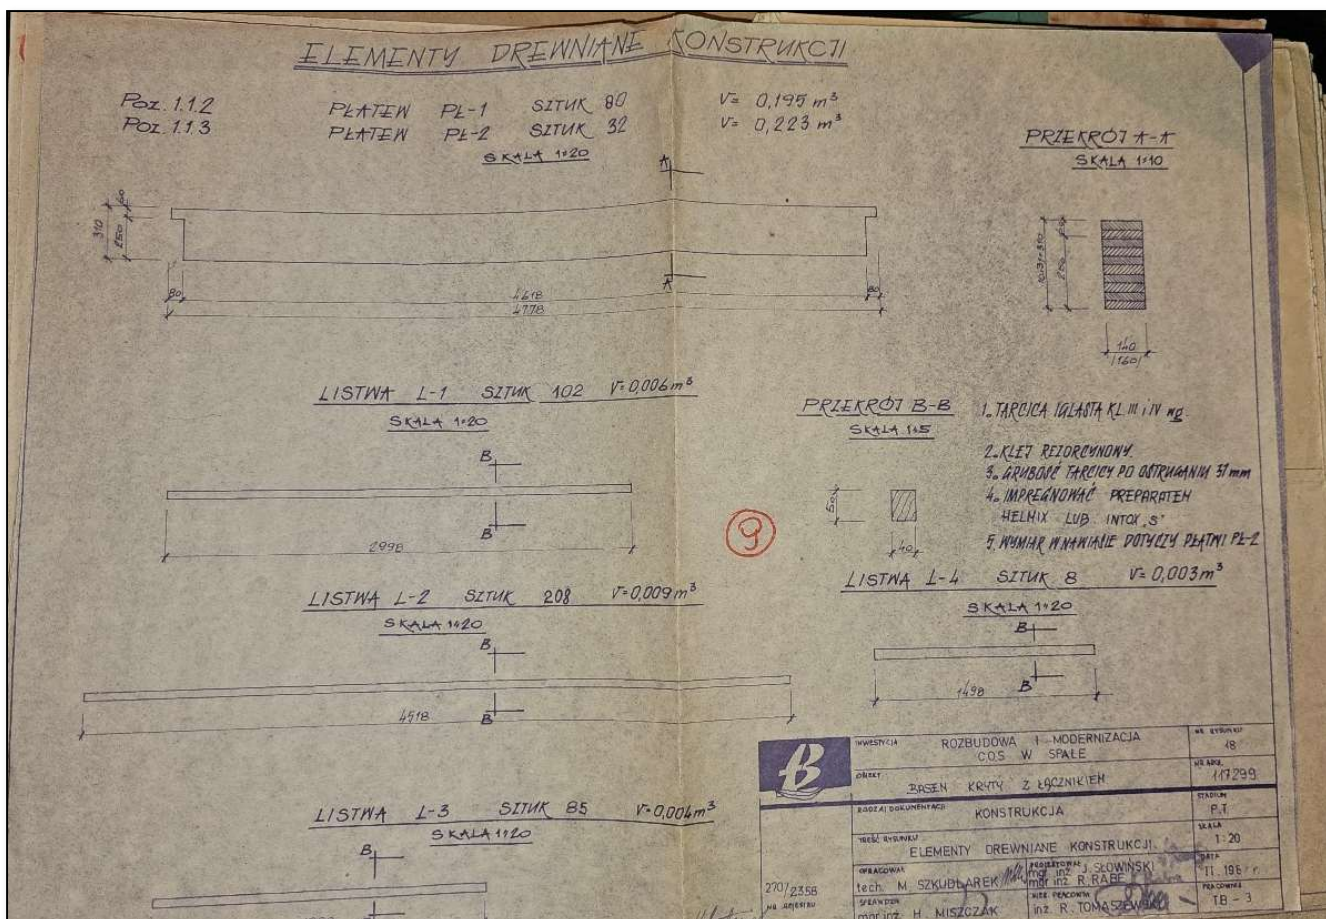 ELEMENTY DREWNIANE KONSTRUKCJI
Poz. 1.1.2 PŁATEW PŁ-1 SZTUK 80 V= 0,195 m³
Poz. 1.1.3 PŁATEW PŁ-2 SZTUK 32 V= 0,223 m³
SKALA 1:20
PRZEKRÓJ A-A
SKALA 1:10
A
60
310
250
A
80
4618
4778
80
10x31=310
60
250
140
(160)
LISTWA L-1 SZTUK 102 V=0,006 m³
SKALA 1:20
B
B
2998
PRZEKRÓJ B-B
SKALA 1:5
50
40
1. TARCICA IGLASTA KL. III i IV wg.
2. KLEJ REZORCYNOWY.
3. GRUBOŚĆ TARCICY PO OSTRUGANIU 31 mm
4. IMPREGNOWAĆ PREPARATEM
HELMIX LUB INTOX „S"
5. WYMIAR W NAWIASIE DOTYCZY PŁATWI PŁ-2
9
LISTWA L-2 SZTUK 208 V=0,009 m³
SKALA 1:20
B
B
4518
LISTWA L-4 SZTUK 8 V= 0,003 m³
SKALA 1:20
B
B
1498
LISTWA L-3 SZTUK 85 V=0,004 m³
SKALA 1:20
B
B
INWESTYCJA ROZBUDOWA I MODERNIZACJA
C.O.S W SPALE
NR RYSUNKU
18
OBIEKT BASEN KRYTY Z ŁĄCZNIKIEM
NR ARCH.
117299
RODZAJ DOKUMENTACJI KONSTRUKCJA
STADIUM
P.T
TREŚĆ RYSUNKU ELEMENTY DREWNIANE KONSTRUKCJI.
SKALA
1:20
OPRACOWAŁ
tech. M. SZKUDLAREK
PROJEKTOWAŁ
mgr inż. J. SŁOWIŃSKI
mgr inż. R. RABE
DATA
270/2358
NR REJESTRU
SPRAWDZIŁ
mgr inż. H. MISZCZAK
KIER. PRACOWNI
inż. R. TOMASZEWSKI
PRACOWNIA
TB - 3